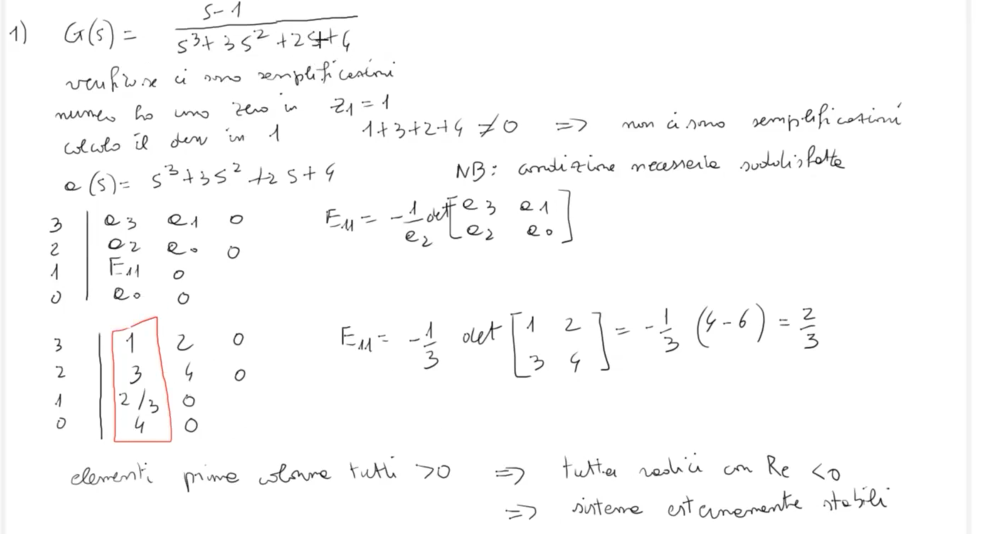 1) G(s) = (s-1)/(s³+3s²+2s+4)
verificare ci sono semplificazioni
numer ho uno zero in z₁ = 1
calcolo il den in 1    1+3+2+4 ≠ 0 => non ci sono semplificazioni
a(s) = s³+3s²+2s+4    NB: condizione necessaria soddisfatta
3 | a₃ a₁ 0    E₁₁ = -1/a₂ det [a₃ a₁
2 | a₂ a₀ 0    a₂ a₀]
1 | E₁₁ 0
0 | a₀ 0
3 | 1 2 0    E₁₁ = -1/3 det [1 2
2 | 3 4 0    3 4] = -1/3 (4-6) = 2/3
1 | 2/3 0
0 | 4 0
elementi prima colonna tutti >0 => tutte radici con Re <0
=> sistema esternamente stabili